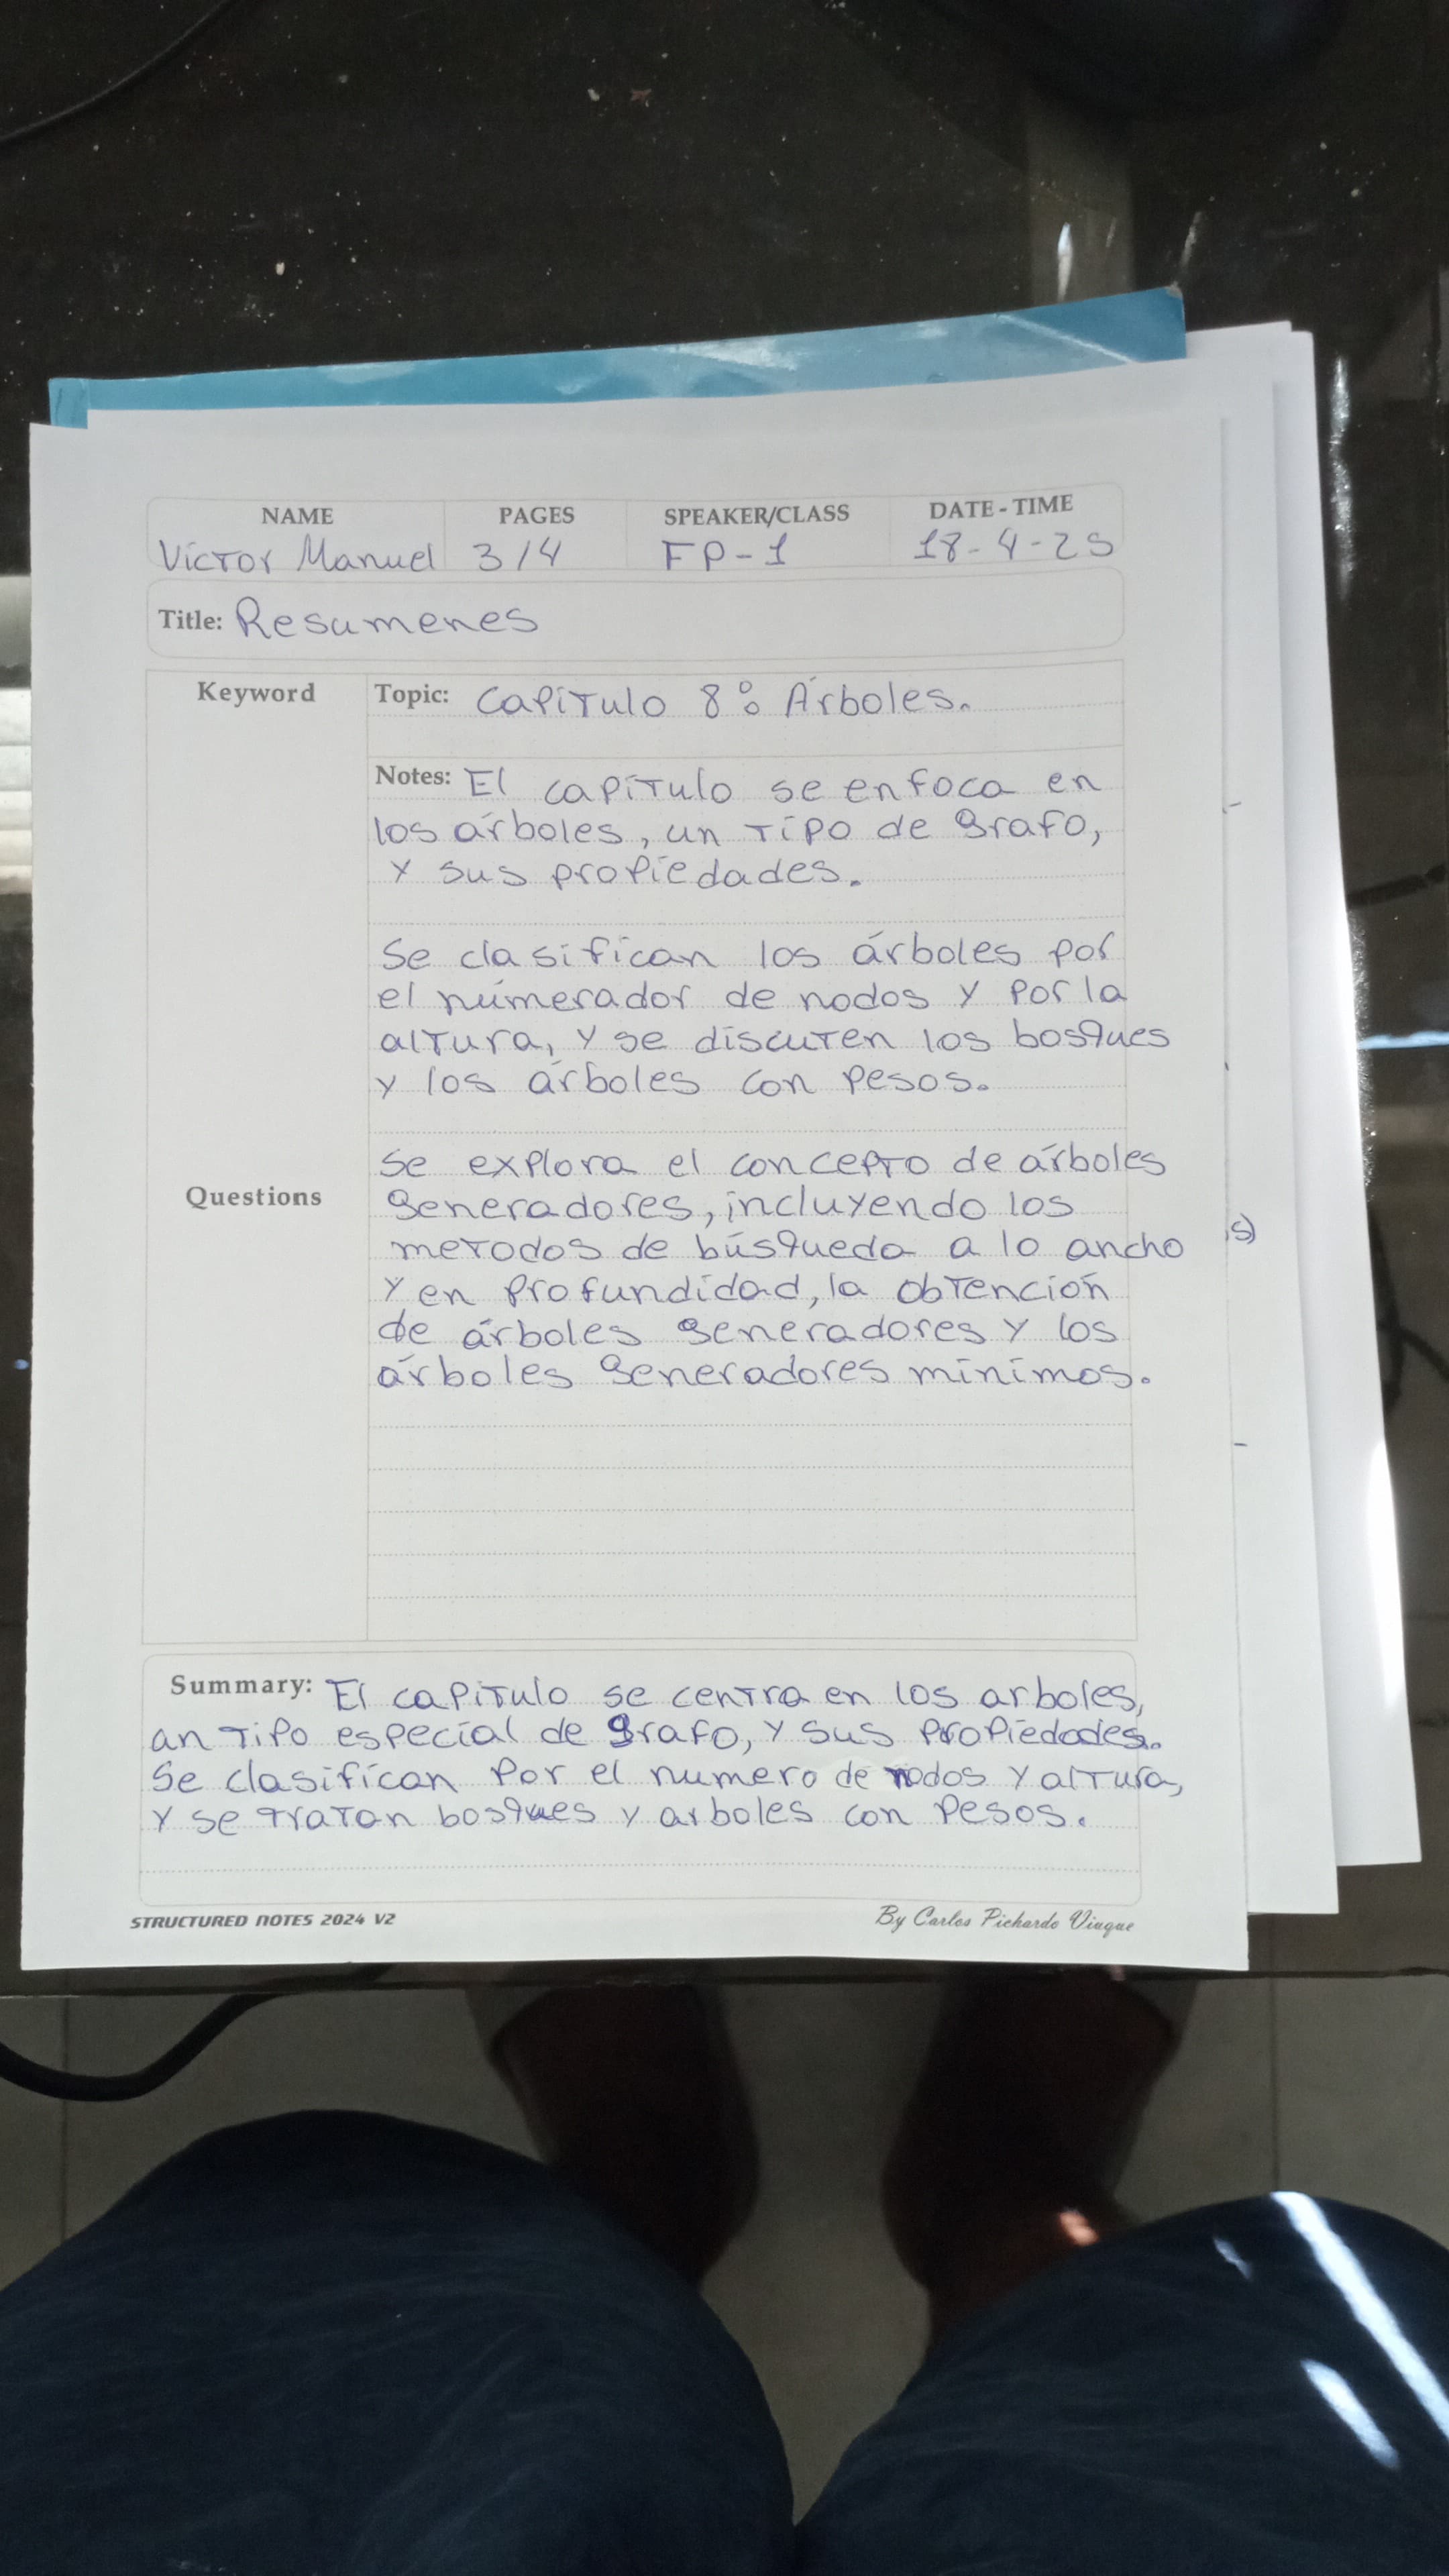 NAME PAGES SPEAKER/CLASS DATE - TIME
Víctor Manuel 3/4 FP-1 18-4-25
Title: Resumenes
Keyword
Topic: Capítulo 8: Árboles.
Notes: El capítulo se enfoca en
los árboles, un tipo de grafo,
y sus propiedades.
Se clasifican los árboles por
el númerador de nodos y por la
altura, y se discuten los bosques
y los árboles con pesos.
Questions
Se explora el concepto de árboles
generadores, incluyendo los
metodos de búsqueda a lo ancho
y en profundidad, la obtención
de árboles generadores y los
árboles generadores mínimos.
s)
Summary: El capítulo se centra en los arboles,
un tipo especial de grafo, y sus propiedades.
Se clasifican por el numero de nodos y altura,
y se tratan bosques y arboles con pesos.
STRUCTURED NOTES 2024 V2
By Carlos Pichardo Viuque